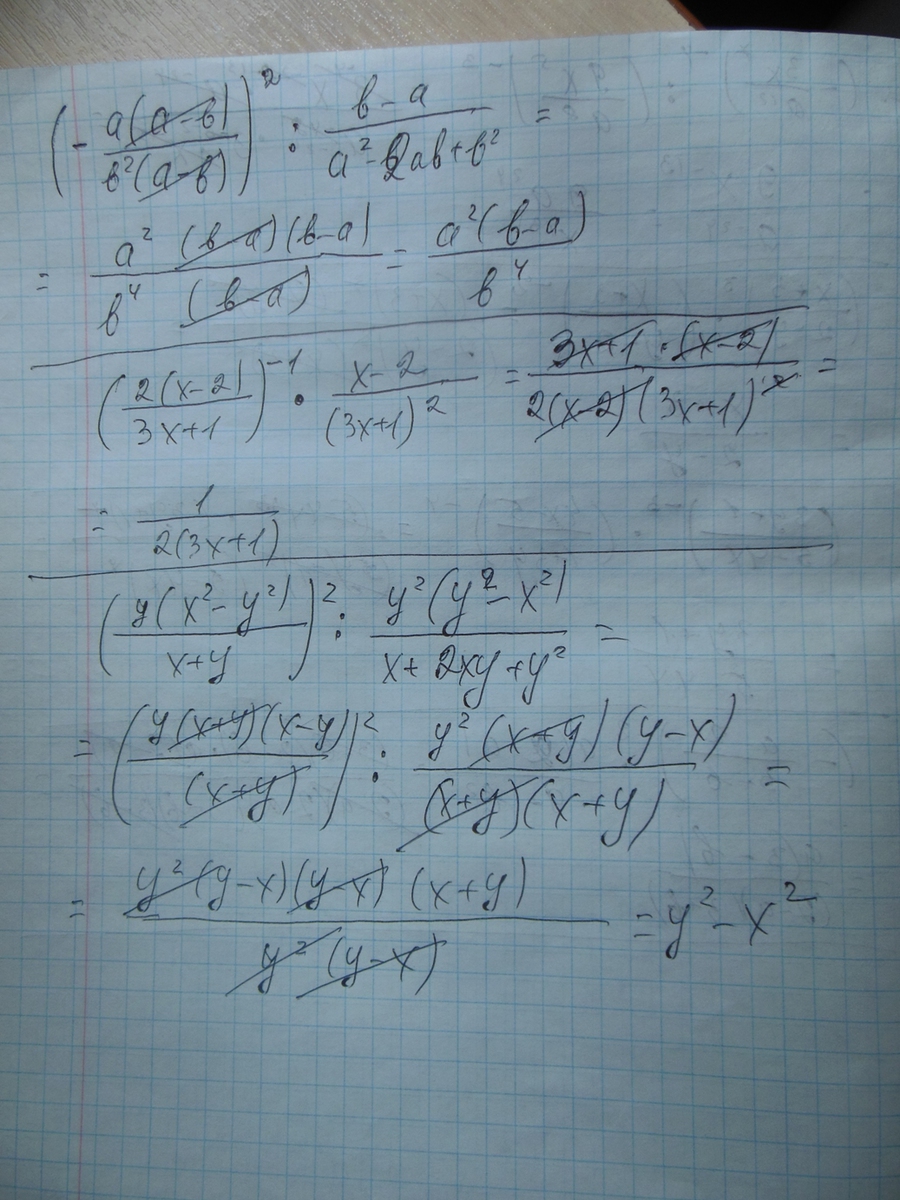 (- a(a-b)/b²(a-b))² : b-a/a²-2ab+b² =
= a² (b-a)(b-a)/b⁴ (b-a) = a²(b-a)/b⁴
(2(x-2)/3x+1)⁻¹ · x-2/(3x+1)² = 3x+1 · (x-2)/2(x-2)(3x+1)² =
= 1/2(3x+1)
(y(x²-y²)/x+y)² : y²(y²-x²)/x+2xy+y² =
= (y(x+y)(x-y)/(x+y))² : y²(x+y)(y-x)/(x+y)(x+y) =
= y²(y-x)(y-x)(x+y)/y²(y-x) = y²-x²